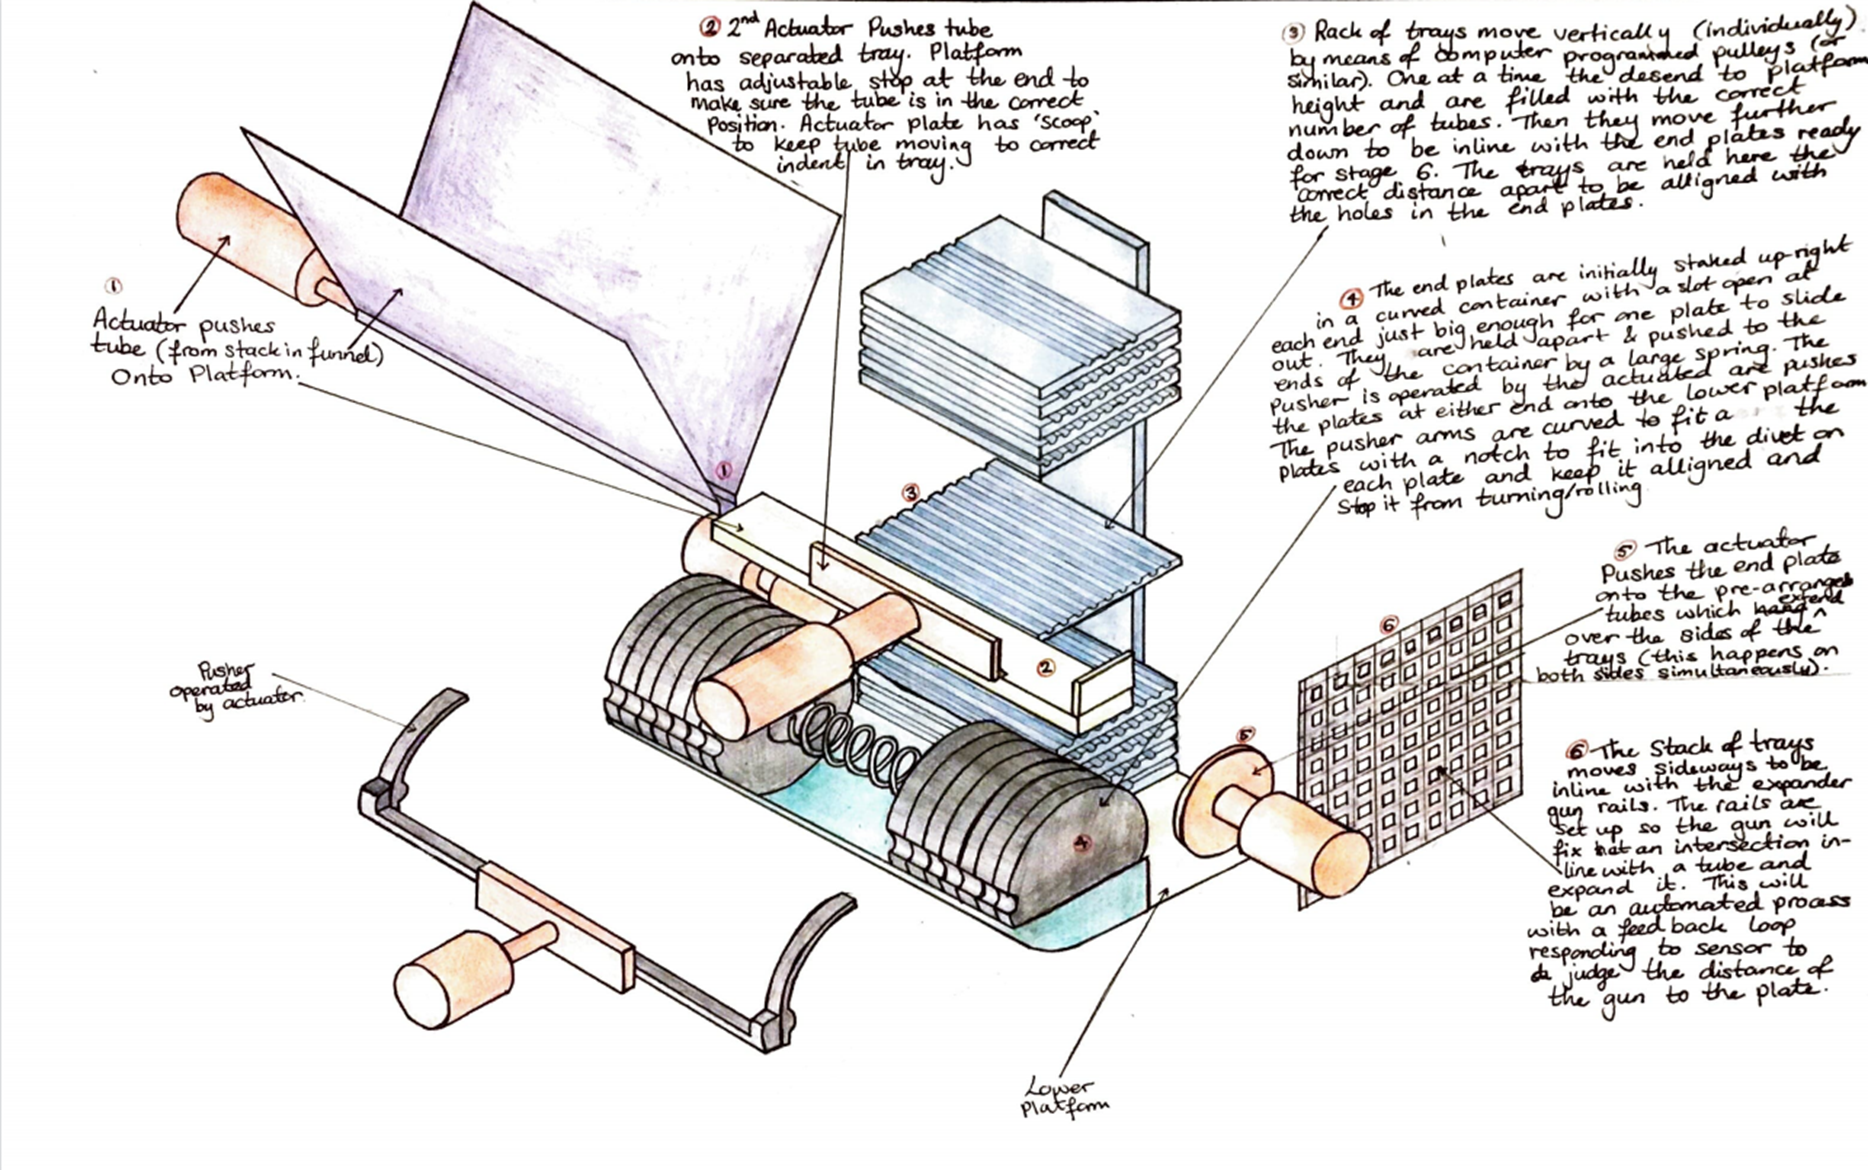 ① Actuator pushes
tube (from stack in funnel)
Onto Platform.
② 2nd Actuator Pushes tube
onto separated tray. Platform
has adjustable stop at the end to
make sure the tube is in the correct
Position. Actuator plate has 'scoop'
to keep tube moving to correct
indent in tray.
③ Rack of trays move vertically (individually)
by means of computer programmed pulleys (or
similar). One at a time the desend to platform
height and are filled with the correct
number of tubes. Then they move further
down to be inline with the end plates ready
for stage 6. The trays are held here the
correct distance apart to be alligned with
the holes in the end plates.
④ The end plates are initially staked up-right
in a curved container with a slot open at
each end just big enough for one plate to slide
out. They are held apart & pushed to the
ends of the container by a large spring. The
Pusher is operated by the actuated are pushes
the plates at either end onto the lower platform
The pusher arms are curved to fit a the
plates with a notch to fit into the divet on
each plate and keep it alligned and
stop it from turning/rolling
⑤ The actuator
Pushes the end plate
onto the pre-arranged
tubes which hang ^ extend
over the sides of the
trays (this happens on
both sides simultaneously).
⑥ The Stack of trays
moves sideways to be
inline with the expander
gun rails. The rails are
set up so the gun will
fix at an intersection in-
line with a tube and
expand it. This will
be an automated process
with a feed back loop
responding to sensor to
judge the distance of
the gun to the plate.
Pusher
operated
by actuator.
Lower
Platform
①
②
③
④
⑤
⑥